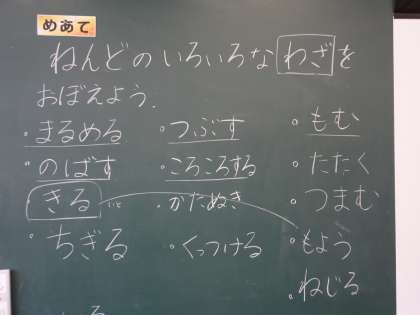 めあて
ねんどのいろいろなわざを
おぼえよう.
・まるめる ・つぶす ・もむ
・のばす ・ころころする ・たたく
きる ・かたぬき ・つまむ
・ちぎる ・くっつける ・もよう
・ねじる